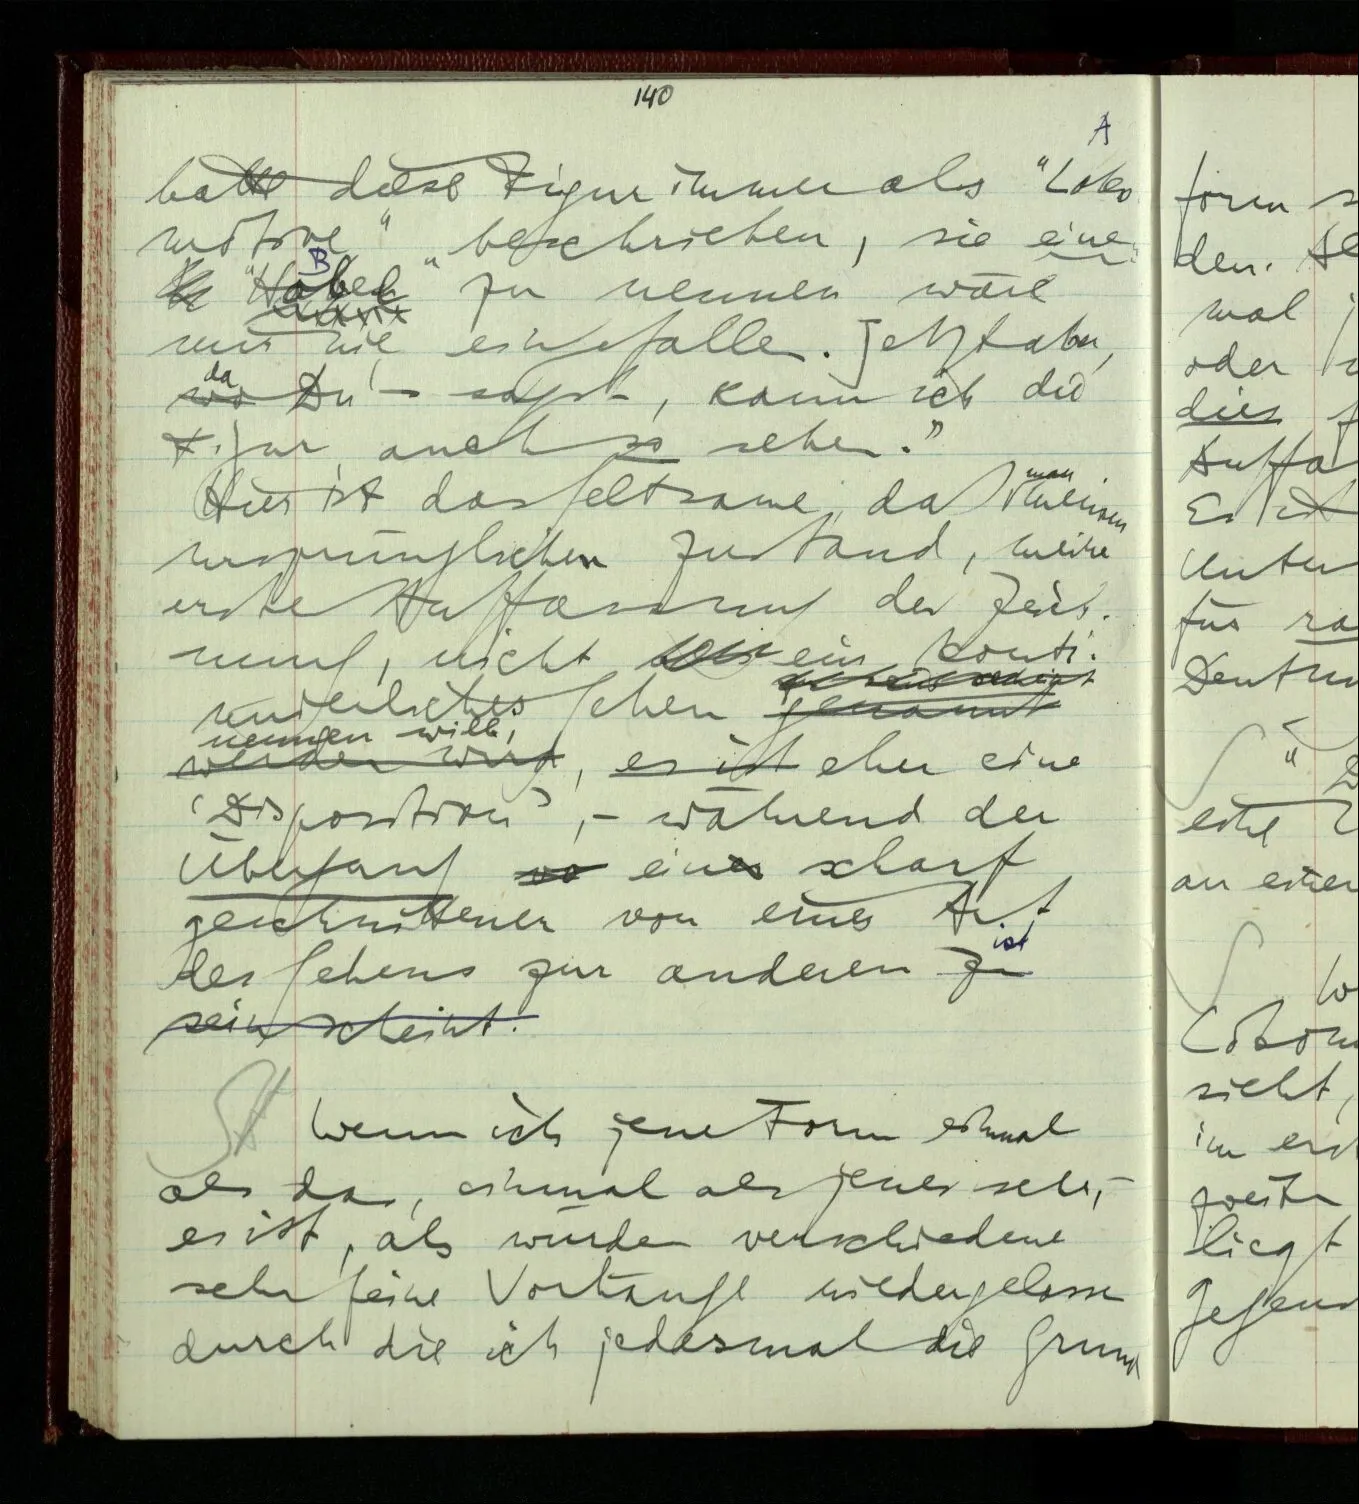 140
A
hatte diese Figur immer als "Loko
motive" beschrieben, sie eine
B
"Hobel" zu nennen wäre
mir nie eingefallen. Jetzt aber,
da
wo Du 's sagst, kann ich die
Figur auch so sehen."
man
Hier ist das seltsame, daß meinen
ursprünglichen Zustand, meine
erste Auffassung der Zeich-
nung, nicht ein konti-
nuierliches Sehen genannt
nennen will,
werden wird, es ist eher eine
'Disposition', – während der
Übergang ein scharf
geschnittener von einer Art
ist
des Sehens zur anderen zu
sein scheint.
Wenn ich jene Form einmal
als das, einmal als jenes sehe, –
es ist, als würden verschiedene
sehr feine Vorhänge niedergelassen
durch die ich jedesmal die Grund
form
den.
mal
oder
dies
Auffa
Es ist
Unter
für
Deutu
an einer
Lokom
sieht,
im
zweiten
liegt
Gegen